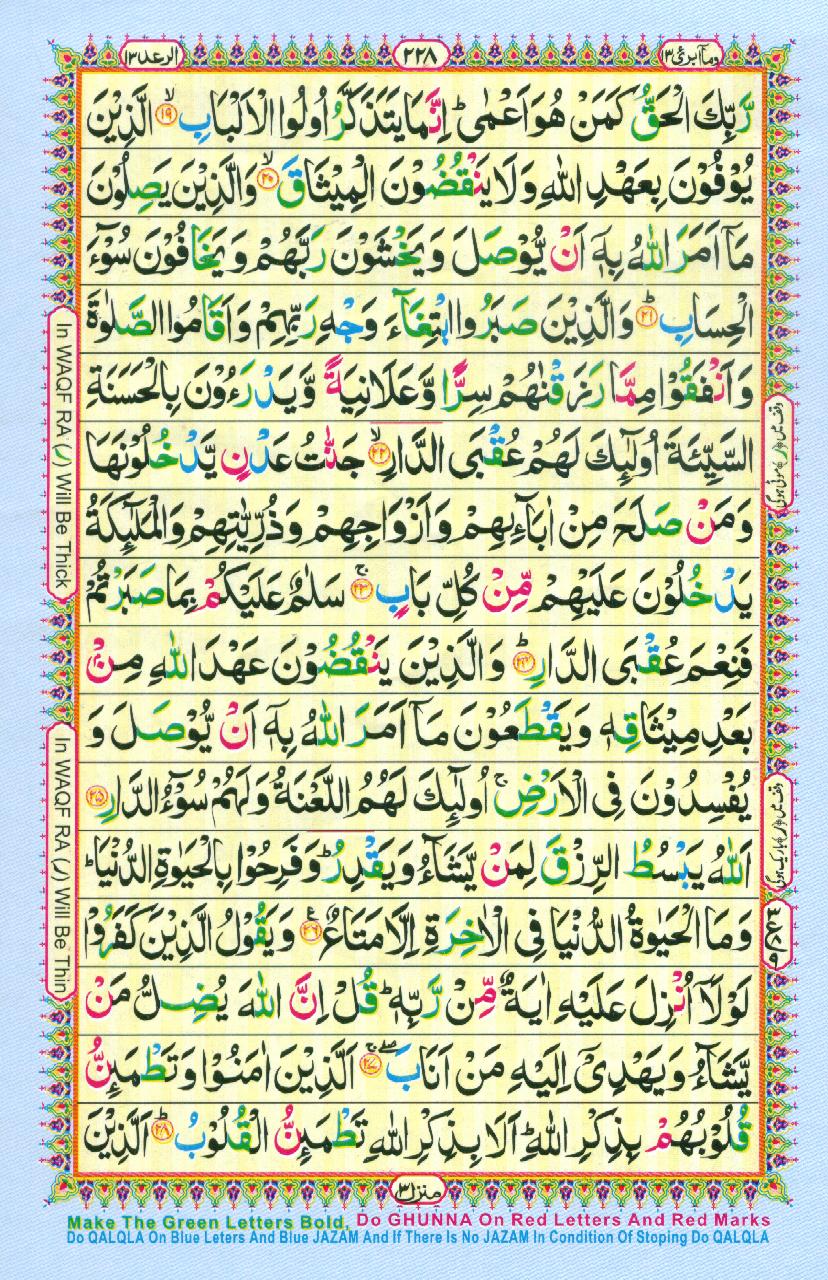 وما ابرئ ١٣
٢٢٨
الرعد ١٣
رَّبِّكَ الْحَقُّ كَمَنْ هُوَ اَعْمٰى ؕ اِنَّمَا يَتَذَكَّرُ اُولُوا الْاَلْبَابِ ۙ‏﴿۱۹﴾ الَّذِيْنَ
يُوْفُوْنَ بِعَهْدِ اللّٰهِ وَلَا يَنْقُضُوْنَ الْمِيْثَاقَ ۙ‏﴿۲۰﴾ وَالَّذِيْنَ يَصِلُوْنَ
مَاۤ اَمَرَ اللّٰهُ بِهٖۤ اَنْ يُّوْصَلَ وَيَخْشَوْنَ رَبَّهُمْ وَيَخَافُوْنَ سُوْٓءَ
الْحِسَابِ ؕ‏﴿۲۱﴾ وَالَّذِيْنَ صَبَرُوا ابْتِغَآءَ وَجْهِ رَبِّهِمْ وَاَقَامُوا الصَّلٰوةَ
وَاَنْفَقُوْا مِمَّا رَزَقْنٰهُمْ سِرًّا وَّعَلَانِيَةً وَّيَدْرَءُوْنَ بِالْحَسَنَةِ
السَّيِّئَةَ اُولٰٓئِكَ لَهُمْ عُقْبَى الدَّارِ ۙ‏﴿۲۲﴾ جَنّٰتُ عَدْنٍ يَّدْخُلُوْنَهَا
وَمَنْ صَلَحَ مِنْ اٰبَآئِهِمْ وَاَزْوَاجِهِمْ وَذُرِّيّٰتِهِمْ وَالْمَلٰٓئِكَةُ
يَدْخُلُوْنَ عَلَيْهِمْ مِّنْ كُلِّ بَابٍ ۚ‏﴿۲۳﴾ سَلٰمٌ عَلَيْكُمْ بِمَا صَبَرْتُمْ
فَنِعْمَ عُقْبَى الدَّارِ ؕ‏﴿۲۴﴾ وَالَّذِيْنَ يَنْقُضُوْنَ عَهْدَ اللّٰهِ مِنْۢ
بَعْدِ مِيْثَاقِهٖ وَيَقْطَعُوْنَ مَاۤ اَمَرَ اللّٰهُ بِهٖۤ اَنْ يُّوْصَلَ وَ
يُفْسِدُوْنَ فِى الْاَرْضِ ۙ اُولٰٓئِكَ لَهُمُ اللَّعْنَةُ وَلَهُمْ سُوْٓءُ الدَّارِ‏﴿۲۵﴾
اَللّٰهُ يَبْسُطُ الرِّزْقَ لِمَنْ يَّشَآءُ وَيَقْدِرُ ؕ وَفَرِحُوْا بِالْحَيٰوةِ الدُّنْيَا ؕ
وَمَا الْحَيٰوةُ الدُّنْيَا فِى الْاٰخِرَةِ اِلَّا مَتَاعٌ‏﴿۲۶﴾ وَيَقُوْلُ الَّذِيْنَ كَفَرُوْا
لَوْلَاۤ اُنْزِلَ عَلَيْهِ اٰيَةٌ مِّنْ رَّبِّهٖ ؕ قُلْ اِنَّ اللّٰهَ يُضِلُّ مَنْ
يَّشَآءُ وَيَهْدِىْۤ اِلَيْهِ مَنْ اَنَابَ ۖۚ‏﴿۲۷﴾ اَلَّذِيْنَ اٰمَنُوْا وَتَطْمَئِنُّ
قُلُوْبُهُمْ بِذِكْرِ اللّٰهِ ؕ اَلَا بِذِكْرِ اللّٰهِ تَطْمَئِنُّ الْقُلُوْبُ ؕ‏﴿۲۸﴾ اَلَّذِيْنَ
منزل ٣
In WAQF RA (ر) Will Be Thick
In WAQF RA (ر) Will Be Thin
Make The Green Letters Bold, Do GHUNNA On Red Letters And Red Marks
Do QALQLA On Blue Leters And Blue JAZAM And If There Is No JAZAM In Condition Of Stoping Do QALQLA